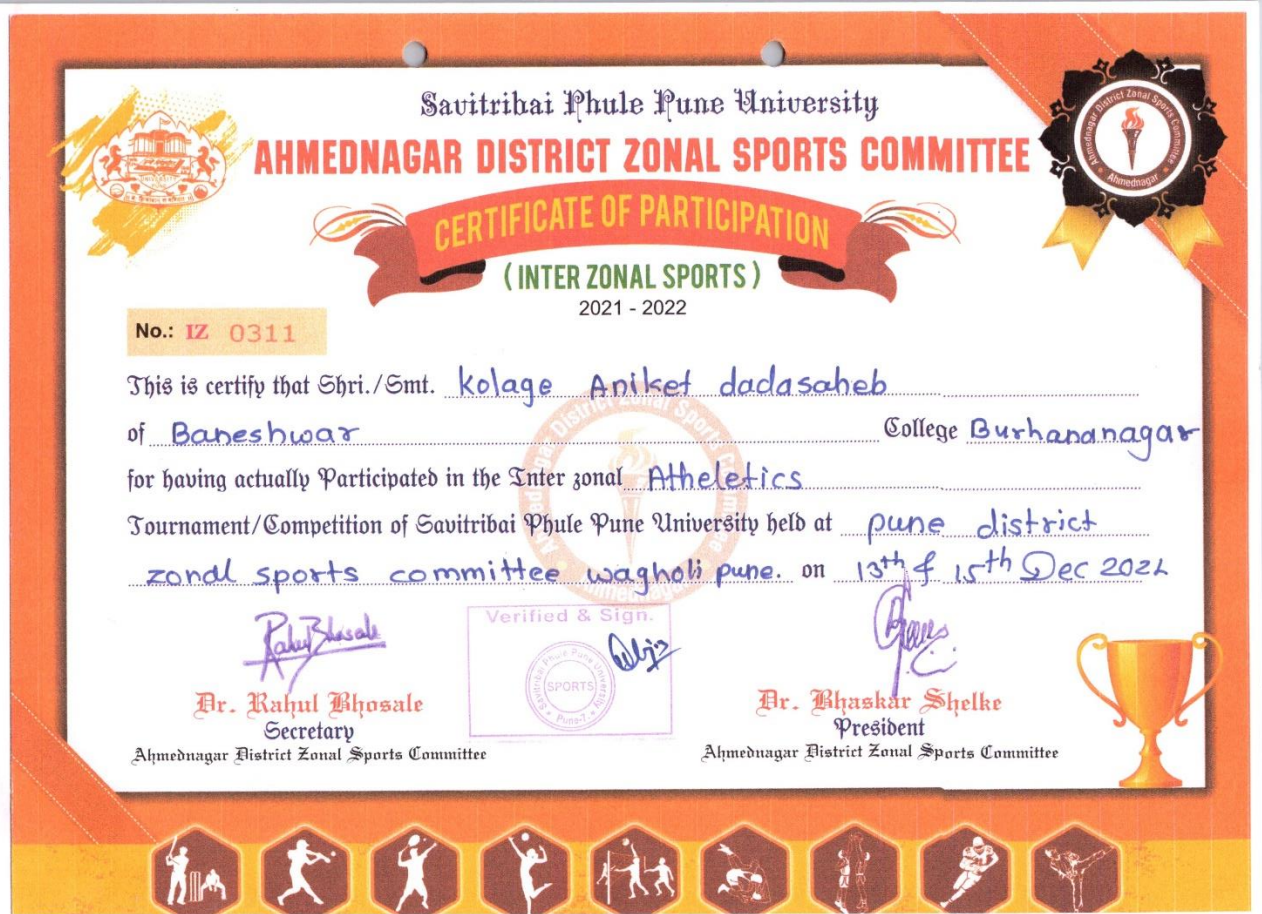 Savitribai Phule Pune University
AHMEDNAGAR DISTRICT ZONAL SPORTS COMMITTEE
Ahmednagar District Zonal Sports Committee
Ahmednagar
CERTIFICATE OF PARTICIPATION
( INTER ZONAL SPORTS )
2021 - 2022
No.: IZ 0311
This is certify that Shri./Smt. kolage Aniket dadasaheb
of Baneshwar College Burhananagar
for having actually Participated in the Inter zonal Atheletics
Tournament/Competition of Savitribai Phule Pune University held at pune district
zonal sports committee wagholi pune. on 13th & 15th Dec 2021
Ahmednagar District Zonal Sports Committee
Ahmednagar
Rahul Bhosale
Verified & Sign.
Savitribai Phule Pune University
SPORTS
Pune-7.
Dr. Rahul Bhosale
Secretary
Ahmednagar District Zonal Sports Committee
Dr. Bhaskar Shelke
President
Ahmednagar District Zonal Sports Committee